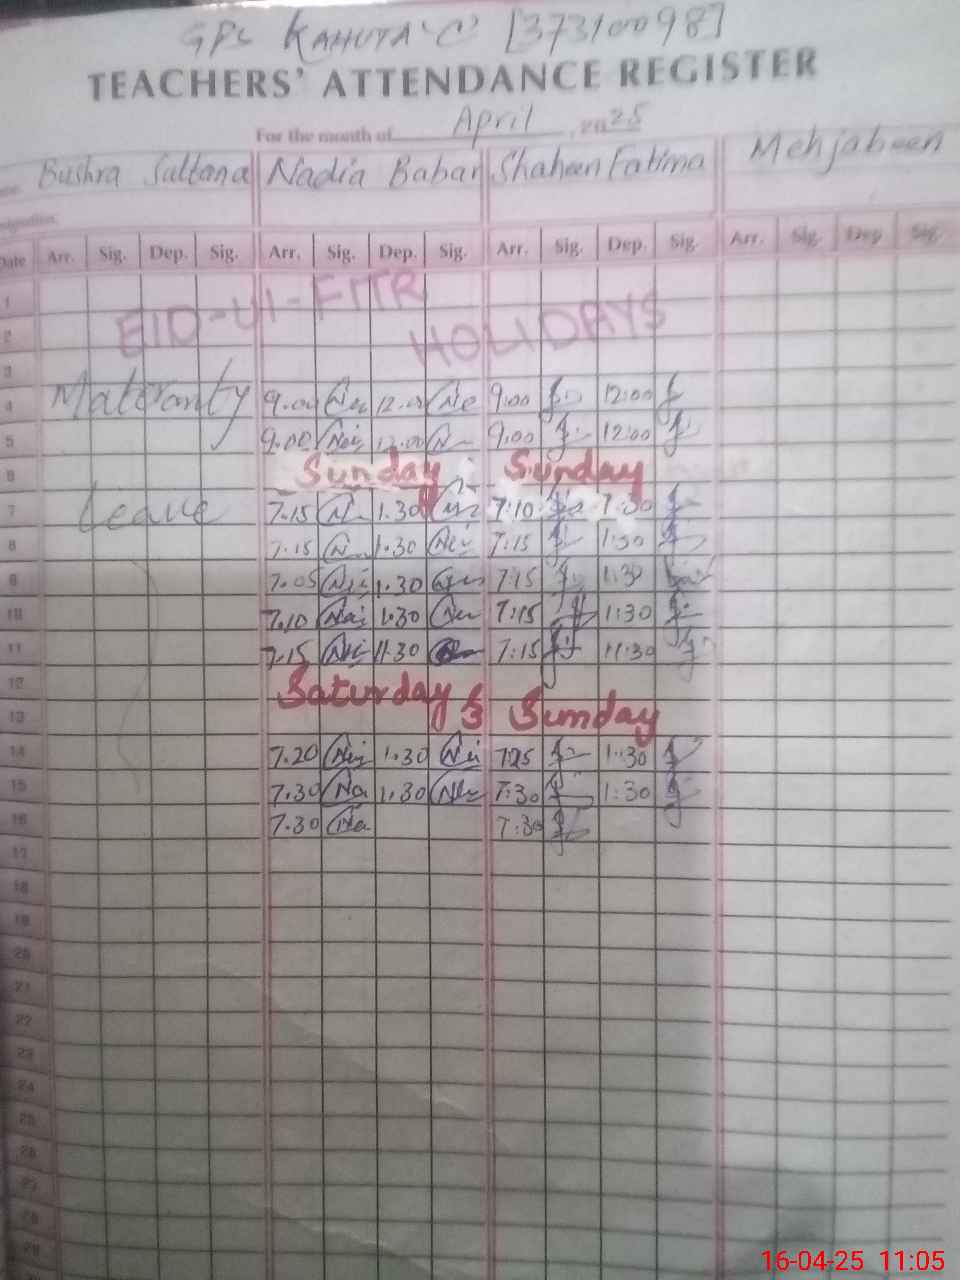 GPS KAHUTA 'C' [37310098]
TEACHERS' ATTENDANCE REGISTER
For the month of April, 2025
Bushra Sultana Nadia Babar Shaheen Fatima Mehjabeen
Date Arr. Sig. Dep. Sig. Arr. Sig. Dep. Sig. Arr. Sig. Dep. Sig. Arr. Sig. Dep Sig.
1 EID-Ul-FITR
2 HOLIDAYS
3
4 Maternity 9.00 12.00 9:00 12:00
5 9.00 12.00 9:00 12:00
6 Sunday Sunday
7 Leave 7.15 1.30 7:10 1:30
8 7.15 1.30 7:15 1:30
9 7.05 1.30 7:15 1:30
10 7.10 1.30 7:15 1:30
11 7.15 11.30 7:15 11:30
12 Saturday &
13 Sunday
14 7.20 1.30 7:25 1:30
15 7.30 1.30 7:30 1:30
16 7.30 7:30
17
18
19
20
21
22
23
24
25
26
27
28
29
16-04-25 11:05